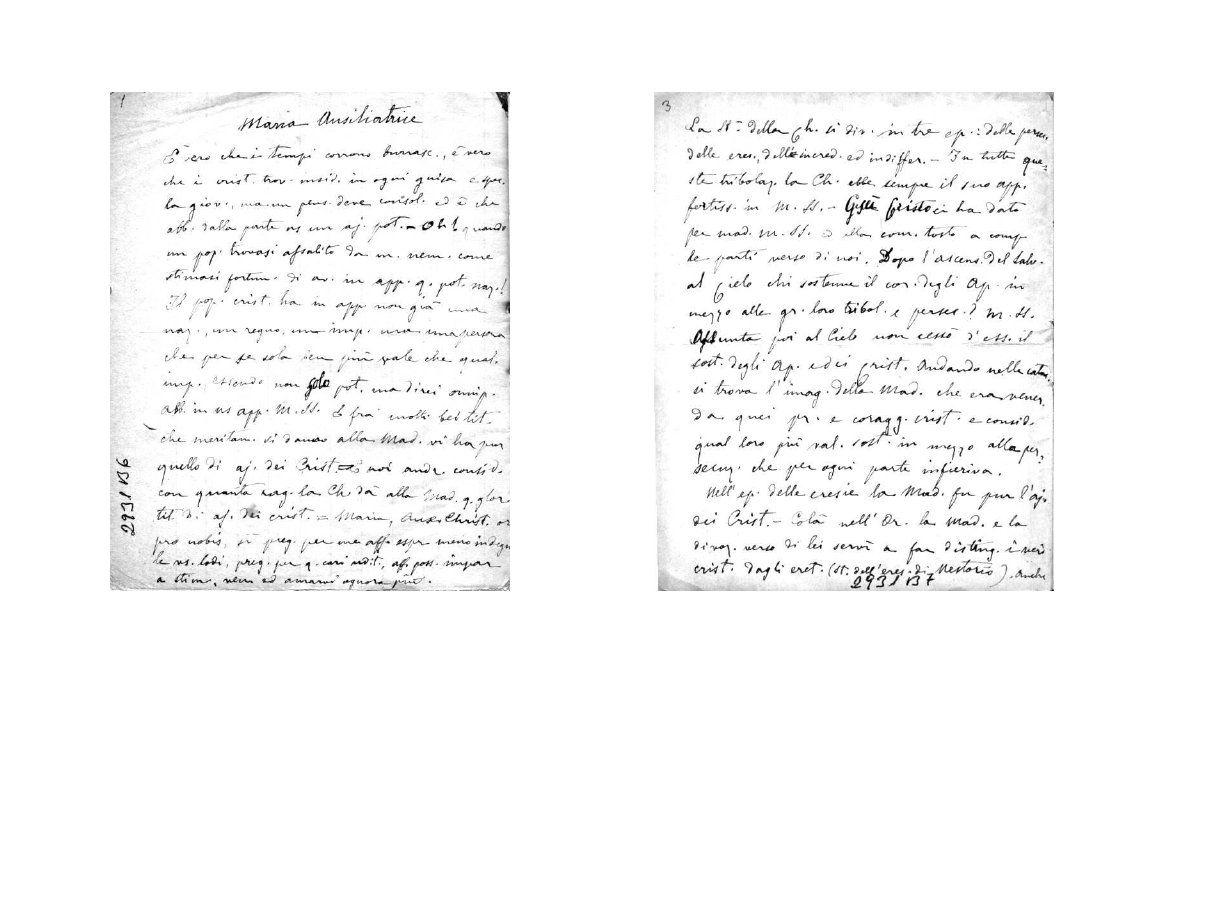 1
Maria Ausiliatrice
È vero che i tempi corrono burrasc., è vero
che i crist. trov. insid. in ogni guisa e spec.
la giov., ma un pens. deve consol. ed è che
abb. dalla parte ns un aj. pot. - Oh! quando
un pop. trovasi assalito da un nem. come
stimasi fortun. di av. in app. q. pot. naz.!
Il pop. crist. ha in app. non già una
naz., un regno, un imp. ma una persona
che per se sola ben più vale che qual.
imp. essendo non solo pot. ma direi omnip.
abb. in ns app. M. SS. E fra i molti bei tit.
che meritam. si danno alla Mad. vi ha pur
quello di aj. dei Crist. = E noi andr. consid.
con quanta rag. la Ch. dà alla Mad. q. glor.
tit. di aj. dei crist. = Maria, Aux. Christ. or
pro nobis, sì preg. per me aff. espr. meno indegn.
le vs. lodi, preg. per q. cari udit., aff. poss. impar.
a stim., ven. ed amarvi ognora più.
2931 B6
3
La St. della Ch. si div. in tre ep.: delle persec.
delle eres., dell'incred. ed indiffer. - In tutte que-
ste tribolaz. la Ch. ebbe sempre il suo app.
fortiss. in M. SS. - Gesù Cristo ci ha dato
per mad. M. SS. ed ella com. tosto a comp.
le parti verso di noi. Dopo l'ascens. del Salv.
al Cielo chi sostenne il cor. degli Ap. in
mezzo alle gr. loro tribol. e persec.? M. SS.
Assunta poi al Cielo non cessò d'ess. il
sost. degli Ap. e dei Crist. Andando nelle catac.
si trova l'imag. della Mad. che era vener.
da quei pr. e coragg. crist. e consid.
qual loro più val. sost. in mezzo alla per-
secuz. che per ogni parte infieriva.
Nell'ep. delle eresie la Mad. fu pur l'aj.
dei Crist. - Colà nell'Or. la Mad. e la
divoz. verso di lei servì a far disting. i veri
crist. dagli eret. (St. dell'eres. di Nestorio). Anche
2931 B7